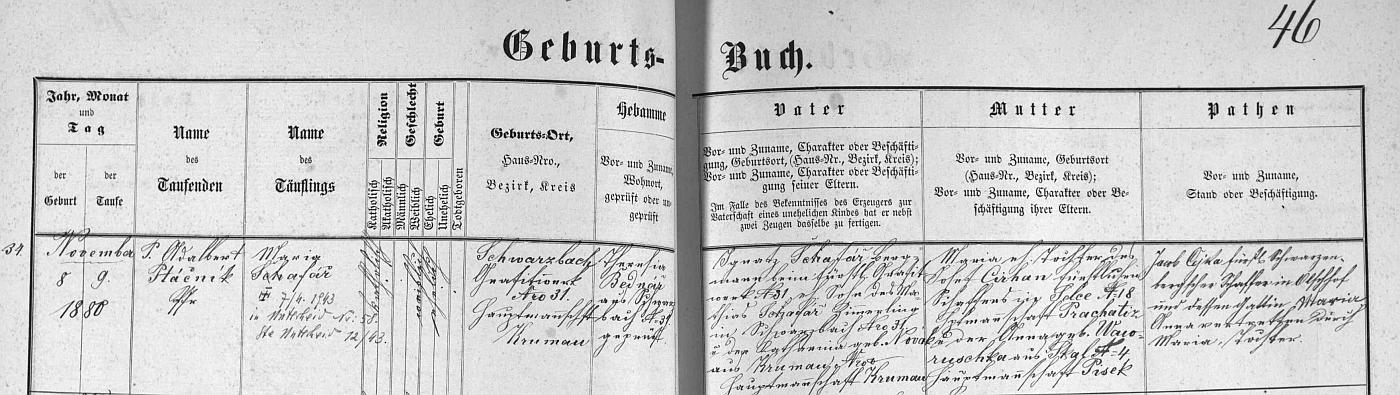 46
Geburts-Buch.
Jahr, Monat
und
Tag
der
Geburt
der
Taufe
Name
des
Taufenden
Name
des
Täuflings
Religion
Katholisch
Akatholisch
Geschlecht
Männlich
Weiblich
Geburt
Ehelich
Unehelich
Todtgeboren
Geburts-Ort,
Haus-Nro.,
Bezirk, Kreis
Hebamme
Vor- und Zuname,
Wohnort,
geprüft oder un-
geprüft
Vater
Vor- und Zuname, Charakter oder Beschäfti-
gung, Geburtsort, (Haus-Nr., Bezirk, Kreis);
Vor- und Zuname, Charakter oder Beschäfti-
gung seiner Eltern.
Im Falle des Bekenntnisses des Erzeugers zur
Vaterschaft eines unehelichen Kindes hat er nebst
zwei Zeugen dasselbe zu fertigen.
Mutter
Vor- und Zuname, Geburtsort
(Haus-Nr., Bezirk, Kreis);
Vor- und Zuname, Charakter oder Be-
schäftigung ihrer Eltern.
Pathen
Vor- und Zuname,
Stand oder Beschäftigung.
34.
November
8 9.
1880
P. Odalbert
Ptáčník
Maria
Schafář
7/4. 1943
12/43.
katholisch
weiblich
ehelich
Schwarzbach
Graphitwerk
Nro 31.
Hauptmannschaft
Krumau
Theresia
Bednář
aus Schwarz-
bach N. 31
geprüft
Ignatz Schafář Berg-
mann beim fürstl. Grafit-
werk N. 31 e. Sohn des Ma-
thias Schafář
in Schwarzbach Nro 31
u der Katharina geb. Novak
aus Krumau Nro
Hauptmannschaft Krumau
Maria e. Tochter des
Josef Cirhan fürstlichen
Schaffers in N. 18
Hauptmannschaft Prachatiz
u der Anna geb. Wawo-
ruschka aus Skal N. 4
Hauptmannschaft Pisek
Jacob fürstl. Schwarzen-
bergscher Schaffer in
und dessen Gattin Maria
Anna vertretten durch
Maria, Tochter.